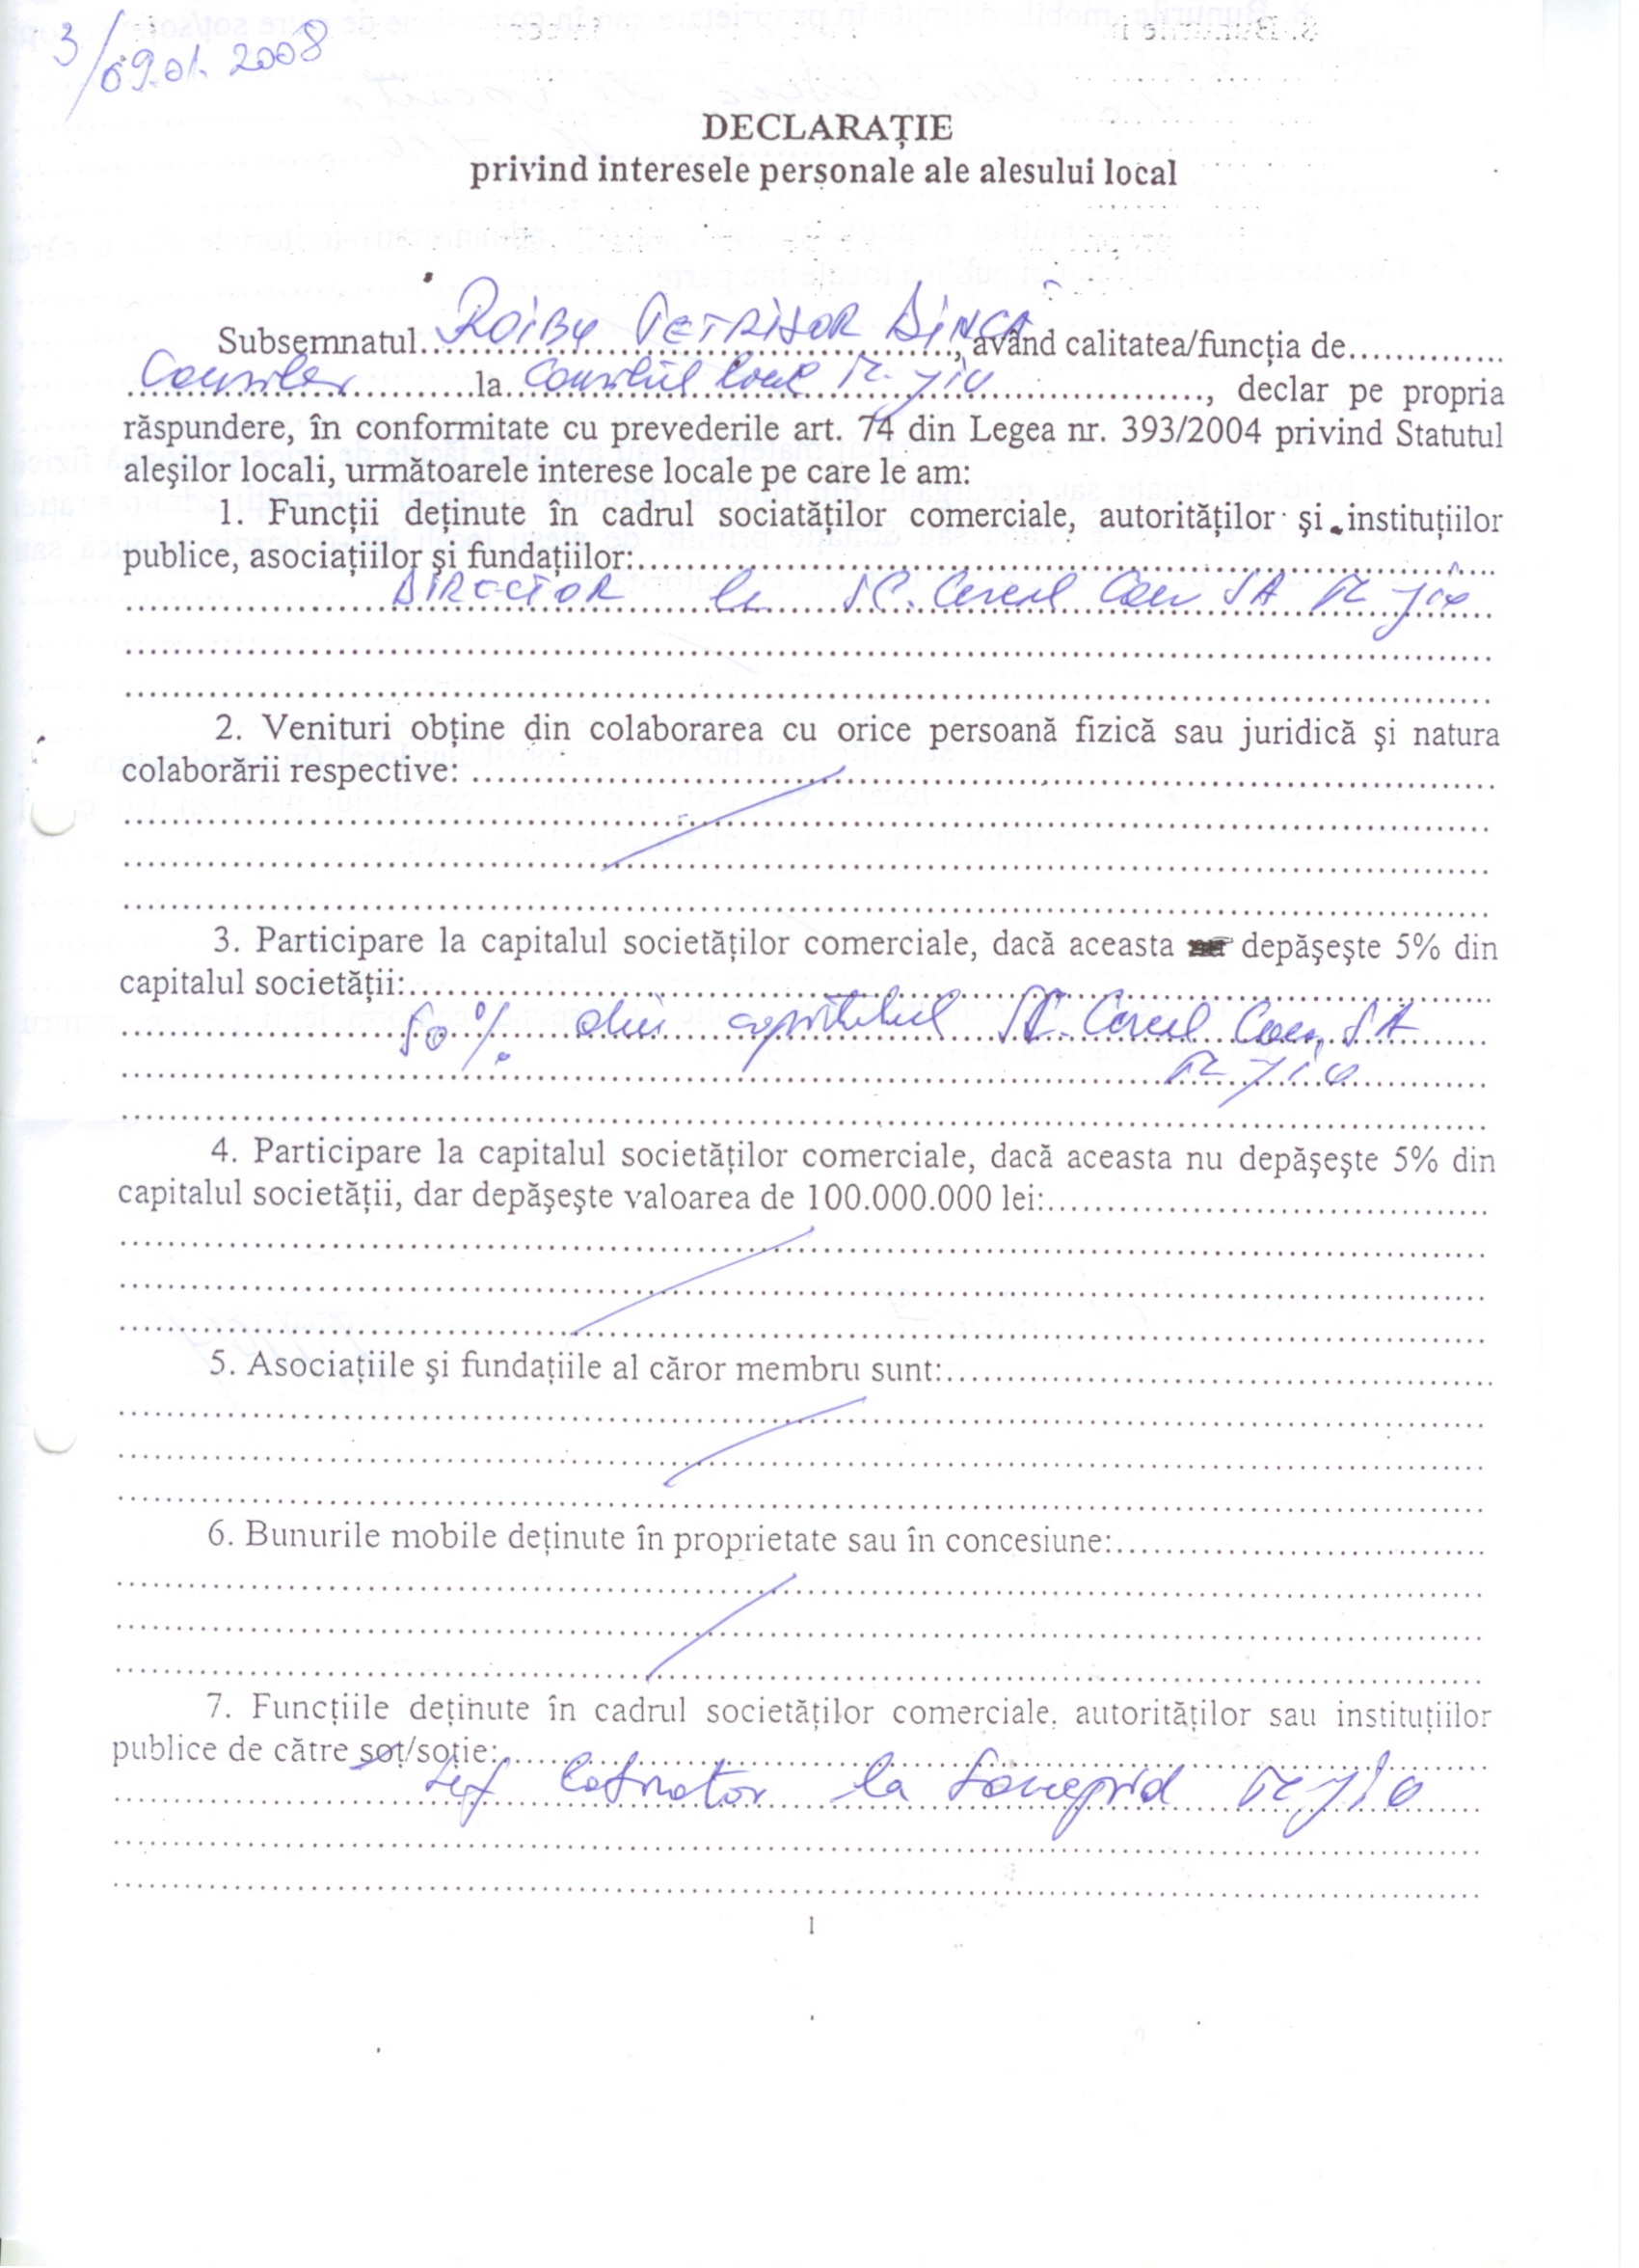 3/09.01.2008
DECLARAŢIE
privind interesele personale ale alesului local
Subsemnatul ROIBU PETRISOR DINCĂ, având calitatea/funcţia de..............
Consilier la Consiliul local Tg. Jiu, declar pe propria
răspundere, în conformitate cu prevederile art. 74 din Legea nr. 393/2004 privind Statutul
aleşilor locali, următoarele interese locale pe care le am:
1. Funcţii deţinute în cadrul sociatăţilor comerciale, autorităţilor şi instituţiilor
publice, asociaţiilor şi fundaţiilor:
DIRECTOR la SC. Cereal Com SA Tg Jiu
2. Venituri obţine din colaborarea cu orice persoană fizică sau juridică şi natura
colaborării respective:
3. Participare la capitalul societăţilor comerciale, dacă aceasta depăşeşte 5% din
capitalul societăţii:
50% din capitalul SC. Cereal Com SA
Tg Jiu
4. Participare la capitalul societăţilor comerciale, dacă aceasta nu depăşeşte 5% din
capitalul societăţii, dar depăşeşte valoarea de 100.000.000 lei:
5. Asociaţiile şi fundaţiile al căror membru sunt:
6. Bunurile mobile deţinute în proprietate sau în concesiune:
7. Funcţiile deţinute în cadrul societăţilor comerciale, autorităţilor sau instituţiilor
publice de către soţ/soţie:
la Tg Jiu
1